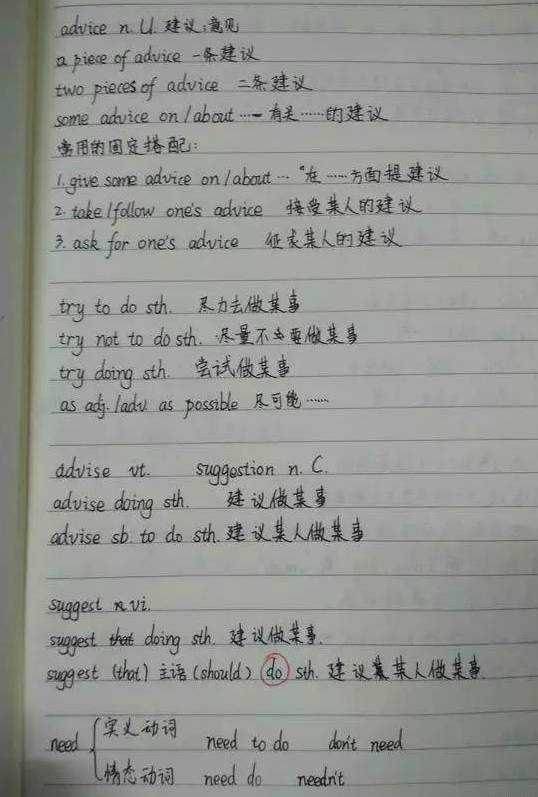 advice n. U. 建议,意见
a piece of advice 一条建议
two pieces of advice 二条建议
some advice on/about ……有关……的建议
常用的固定搭配:
1. give some advice on/about … "在……方面提建议
2. take/follow one's advice 接受某人的建议
3. ask for one's advice 征求某人的建议
try to do sth. 尽力去做某事
try not to do sth. 尽量不要做某事
try doing sth. 尝试做某事
as adj./adv as possible 尽可能……
advise vt. suggestion n. C.
advise doing sth. 建议做某事
advise sb. to do sth. 建议某人做某事
suggest vi.
suggest that doing sth. 建议做某事.
suggest (that) 主语 (should) do sth. 建议某人做某事
need 实义动词 need to do don't need
情态动词 need do needn't